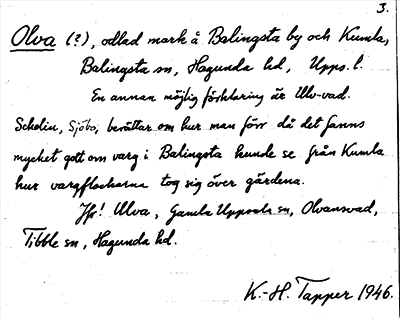 3.
Olva (?), odlad mark å Balingsta by och Kumla,
Balingsta sn, Hagunda hd, Upps. l.
En annan möjlig förklaring är Ulv-vad.
Schelin, Sjöbo, berättar om hur man förr då det fanns
mycket gott om varg i Balingsta kunde se från Kumla
hur vargflockarna tog sig över gärdena.
Jfr! Ulva, Gamla Uppsala sn, Olvansvad,
Tibble sn, Hagunda hd.
K.-H. Tapper 1946.